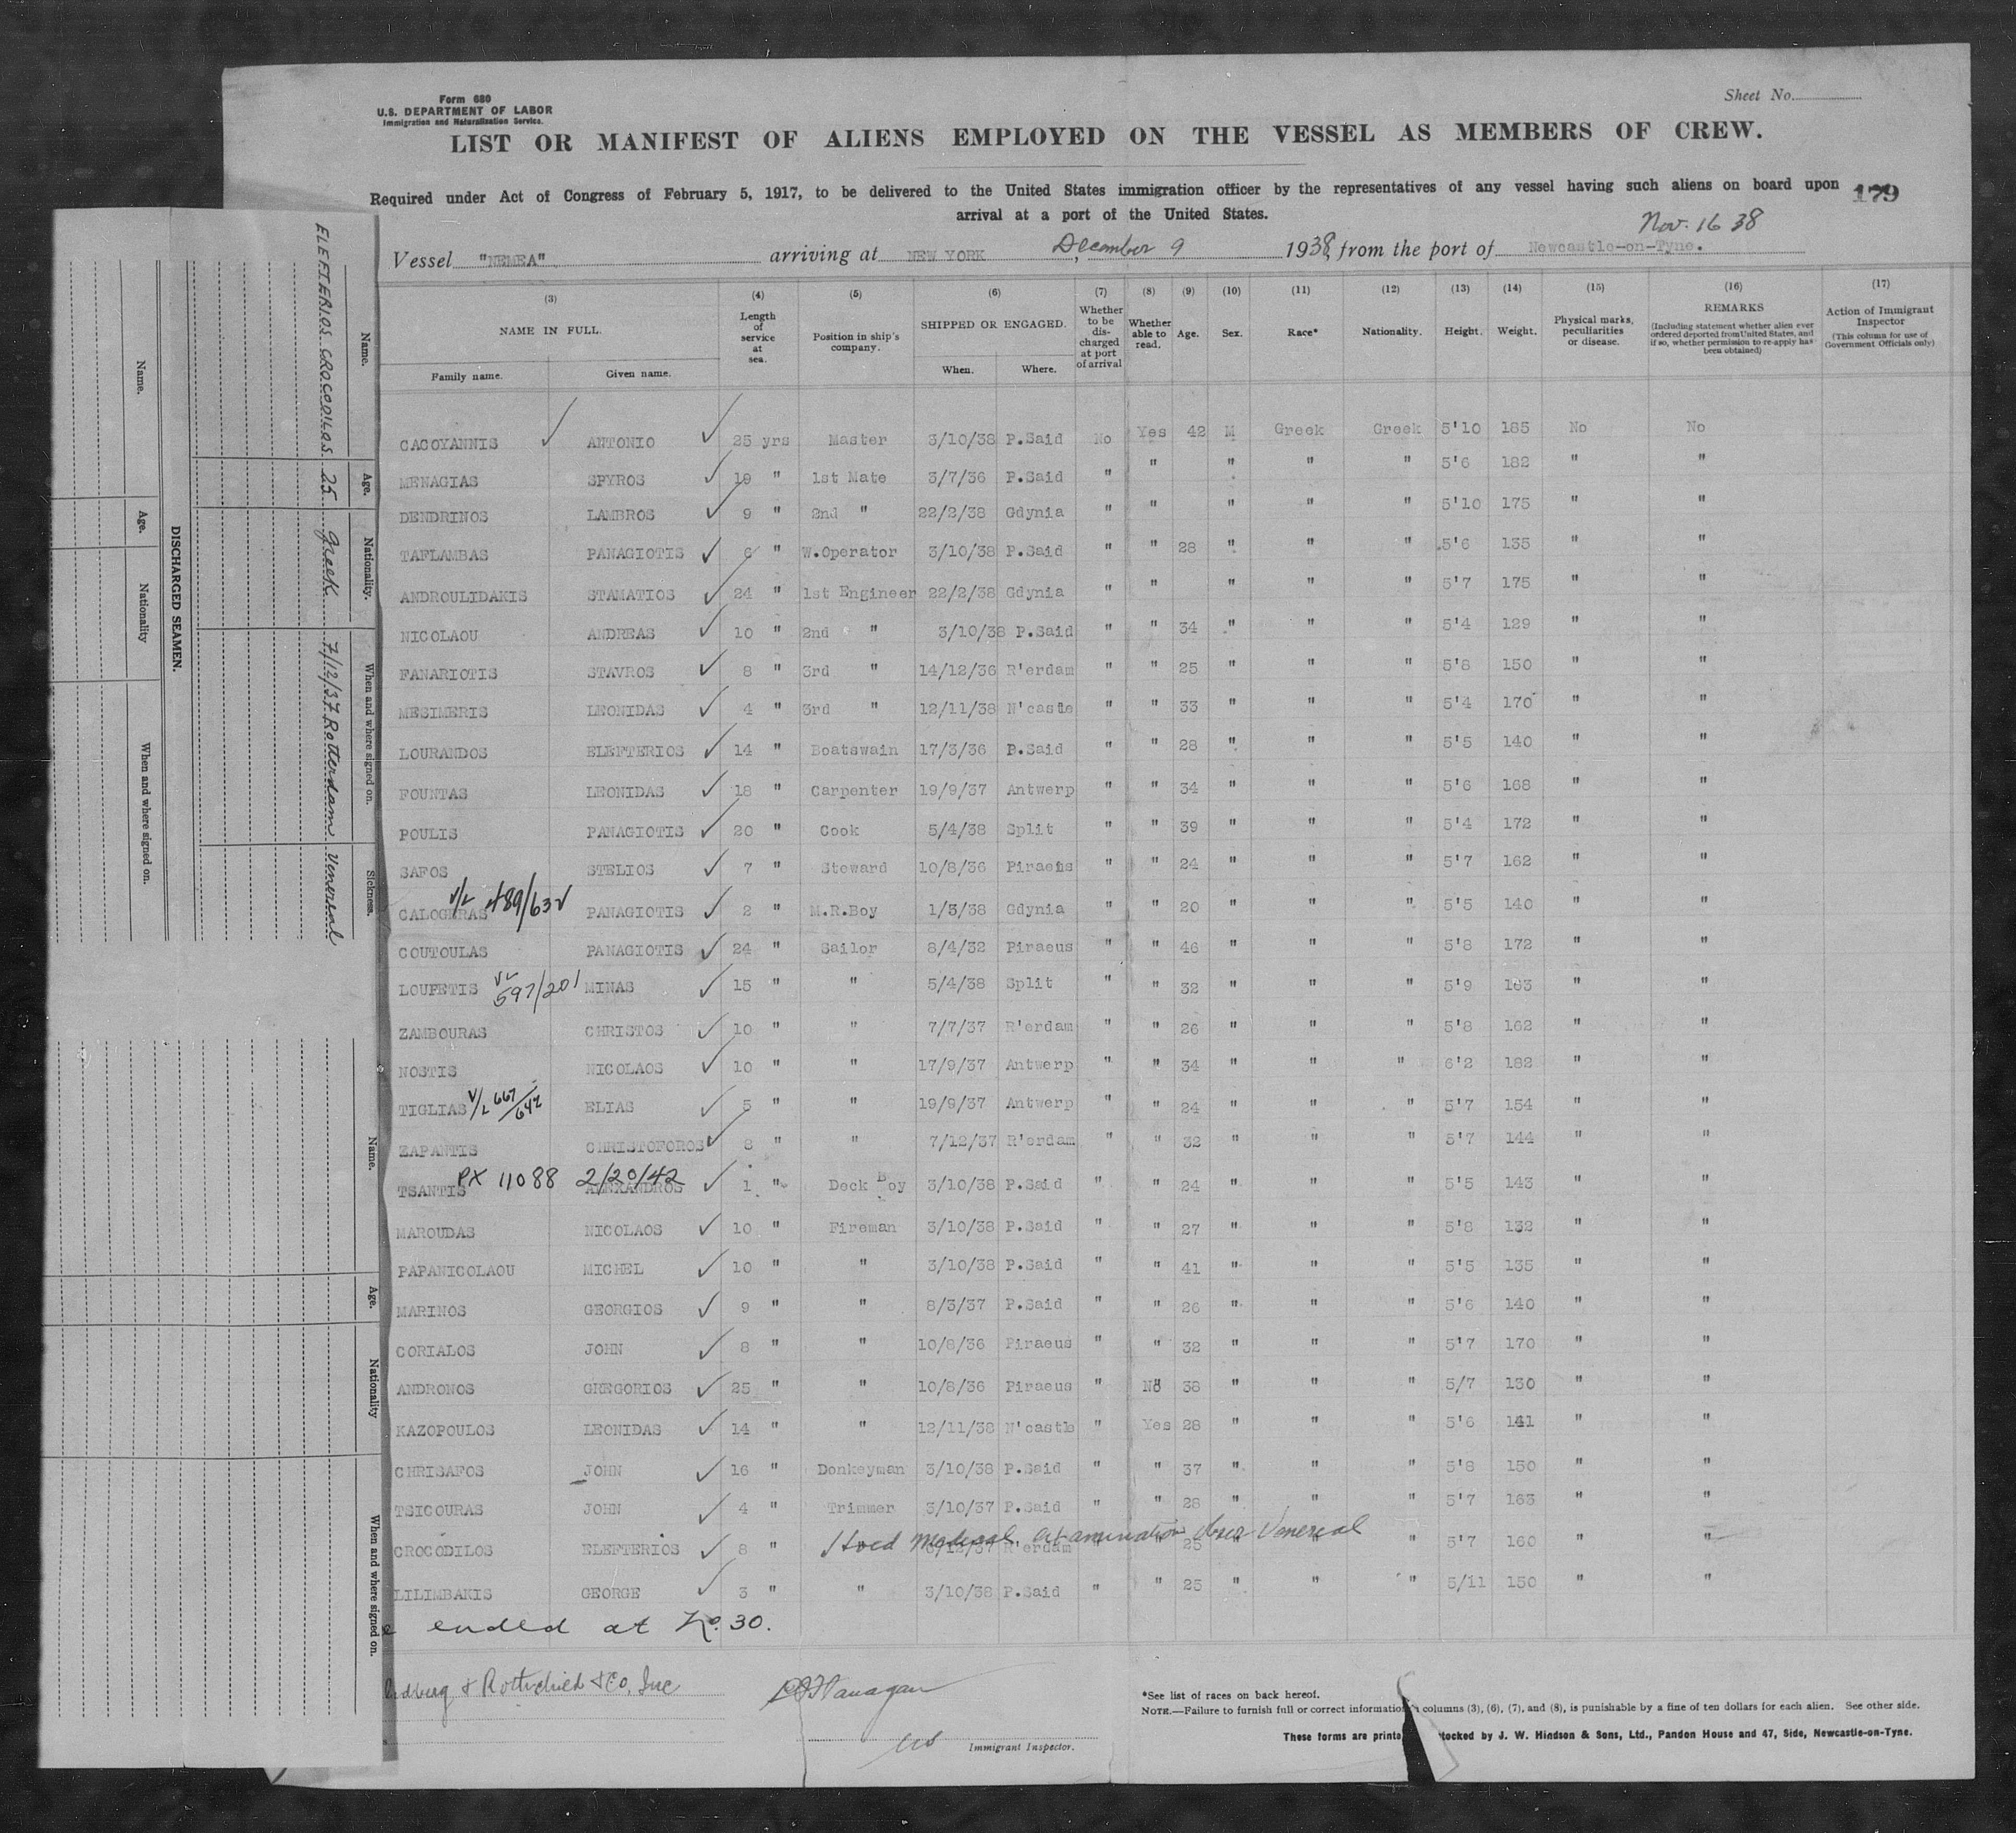 Form 680
U.S. DEPARTMENT OF LABOR
Immigration and Naturalization Service.
Sheet No.
LIST OR MANIFEST OF ALIENS EMPLOYED ON THE VESSEL AS MEMBERS OF CREW.
Required under Act of Congress of February 5, 1917, to be delivered to the United States immigration officer by the representatives of any vessel having such aliens on board upon
arrival at a port of the United States.
179
Nov. 16 38
Vessel "NEMEA" arriving at NEW YORK, December 9 1938, from the port of Newcastle-on-Tyne.
(3) (4) (5) (6) (7) (8) (9) (10) (11) (12) (13) (14) (15) (16) (17)
NAME IN FULL. Length of service at sea. Position in ship's company. SHIPPED OR ENGAGED. Whether to be discharged at port of arrival Whether able to read. Age. Sex. Race* Nationality. Height. Weight. Physical marks, peculiarities or disease. REMARKS (Including statement whether alien ever ordered deported from United States, and if so, whether permission to re-apply has been obtained) Action of Immigrant Inspector (This column for use of Government Officials only)
Family name. Given name. When. Where.
CACOYANNIS ANTONIO 25 yrs Master 3/10/38 P.Said No Yes 42 M Greek Greek 5'10 185 No No
MENAGIAS SPYROS 19 " 1st Mate 3/7/36 P.Said " " " " " 5'6 182 " "
DENDRINOS LAMBROS 9 " 2nd " 22/2/38 Gdynia " " " " " 5'10 175 " "
TAFLAMBAS PANAGIOTIS 6 " W.Operator 3/10/38 P.Said " " 28 " " " 5'6 135 " "
ANDROULIDAKIS STAMATIOS 24 " 1st Engineer 22/2/38 Gdynia " " " " " 5'7 175 " "
NICOLAOU ANDREAS 10 " 2nd " 3/10/38 P.Said " " 34 " " " 5'4 129 " "
FANARIOTIS STAVROS 8 " 3rd " 14/12/36 R'erdam " " 25 " " " 5'8 150 " "
MESIMERIS LEONIDAS 4 " 3rd " 12/11/38 N'castle " " 33 " " " 5'4 170 " "
LOURANDOS ELEFTERIOS 14 " Boatswain 17/3/36 P.Said " " 28 " " " 5'5 140 " "
FOUNTAS LEONIDAS 18 " Carpenter 19/9/37 Antwerp " " 34 " " " 5'6 168 " "
POULIS PANAGIOTIS 20 " Cook 5/4/38 Split " " 39 " " " 5'4 172 " "
SAFOS STELIOS 7 " Steward 10/8/36 Piraeus " " 24 " " " 5'7 162 " "
V/L 489/632
CALOGERAS PANAGIOTIS 2 " M.R.Boy 1/3/38 Gdynia " " 20 " " " 5'5 140 " "
COUTOULAS PANAGIOTIS 24 " Sailor 8/4/32 Piraeus " " 46 " " " 5'8 172 " "
LOUFETIS 597/201 MINAS 15 " " 5/4/38 Split " " 32 " " " 5'9 163 " "
ZAMBOURAS CHRISTOS 10 " " 7/7/37 R'erdam " " 26 " " " 5'8 162 " "
NOSTIS NICOLAOS 10 " " 17/9/37 Antwerp " " 34 " " " 6'2 182 " "
TIGLIAS V/L 667/642 ELIAS 5 " " 19/9/37 Antwerp " " 24 " " " 5'7 154 " "
ZAPANTIS CHRISTOFOROS 8 " " 7/12/37 R'erdam " " 32 " " " 5'7 144 " "
PX 11088 2/20/42
TSANTIS ALEXANDROS 1 " Deck Boy 3/10/38 P.Said " " 24 " " " 5'5 143 " "
MAROUDAS NICOLAOS 10 " Fireman 3/10/38 P.Said " " 27 " " " 5'8 132 " "
PAPANICOLAOU MICHEL 10 " " 3/10/38 P.Said " " 41 " " " 5'5 135 " "
MARINOS GEORGIOS 9 " " 8/3/37 P.Said " " 26 " " " 5'6 140 " "
CORIALOS JOHN 8 " " 10/8/36 Piraeus " " 32 " " " 5'7 170 " "
ANDRONOS GREGORIOS 25 " " 10/8/36 Piraeus " No 38 " " " 5/7 130 " "
KAZOPOULOS LEONIDAS 14 " " 12/11/38 N'castle " Yes 28 " " " 5'6 141 " "
CHRISAFOS JOHN 16 " Donkeyman 3/10/38 P.Said " " 37 " " " 5'8 150 " "
TSICOURAS JOHN 4 " Trimmer 3/10/37 P.Said " " 28 " " " 5'7 163 " "
medical examination Venereal
CROCODILOS ELEFTERIOS 8 " R'erdam 25 " 5'7 160 " "
LILIMBAKIS GEORGE 3 " " 3/10/38 P.Said " " 25 " " " 5/11 150 " "
ended at No. 30.
& Rothschild & Co, Inc
Flanagan
Immigrant Inspector.
*See list of races on back hereof.
NOTE.—Failure to furnish full or correct information columns (3), (6), (7), and (8), is punishable by a fine of ten dollars for each alien. See other side.
These forms are printe tocked by J. W. Hindson & Sons, Ltd., Pandon House and 47, Side, Newcastle-on-Tyne.
Name. Age. Nationality. When and where signed on. Sickness.
ELEFTERIOS CROCODILOS 25 Greek 7/12/37 Rotterdam Venereal
DISCHARGED SEAMEN.
Name. Age. Nationality When and where signed on.
Name. Age. Nationality When and where signed on.